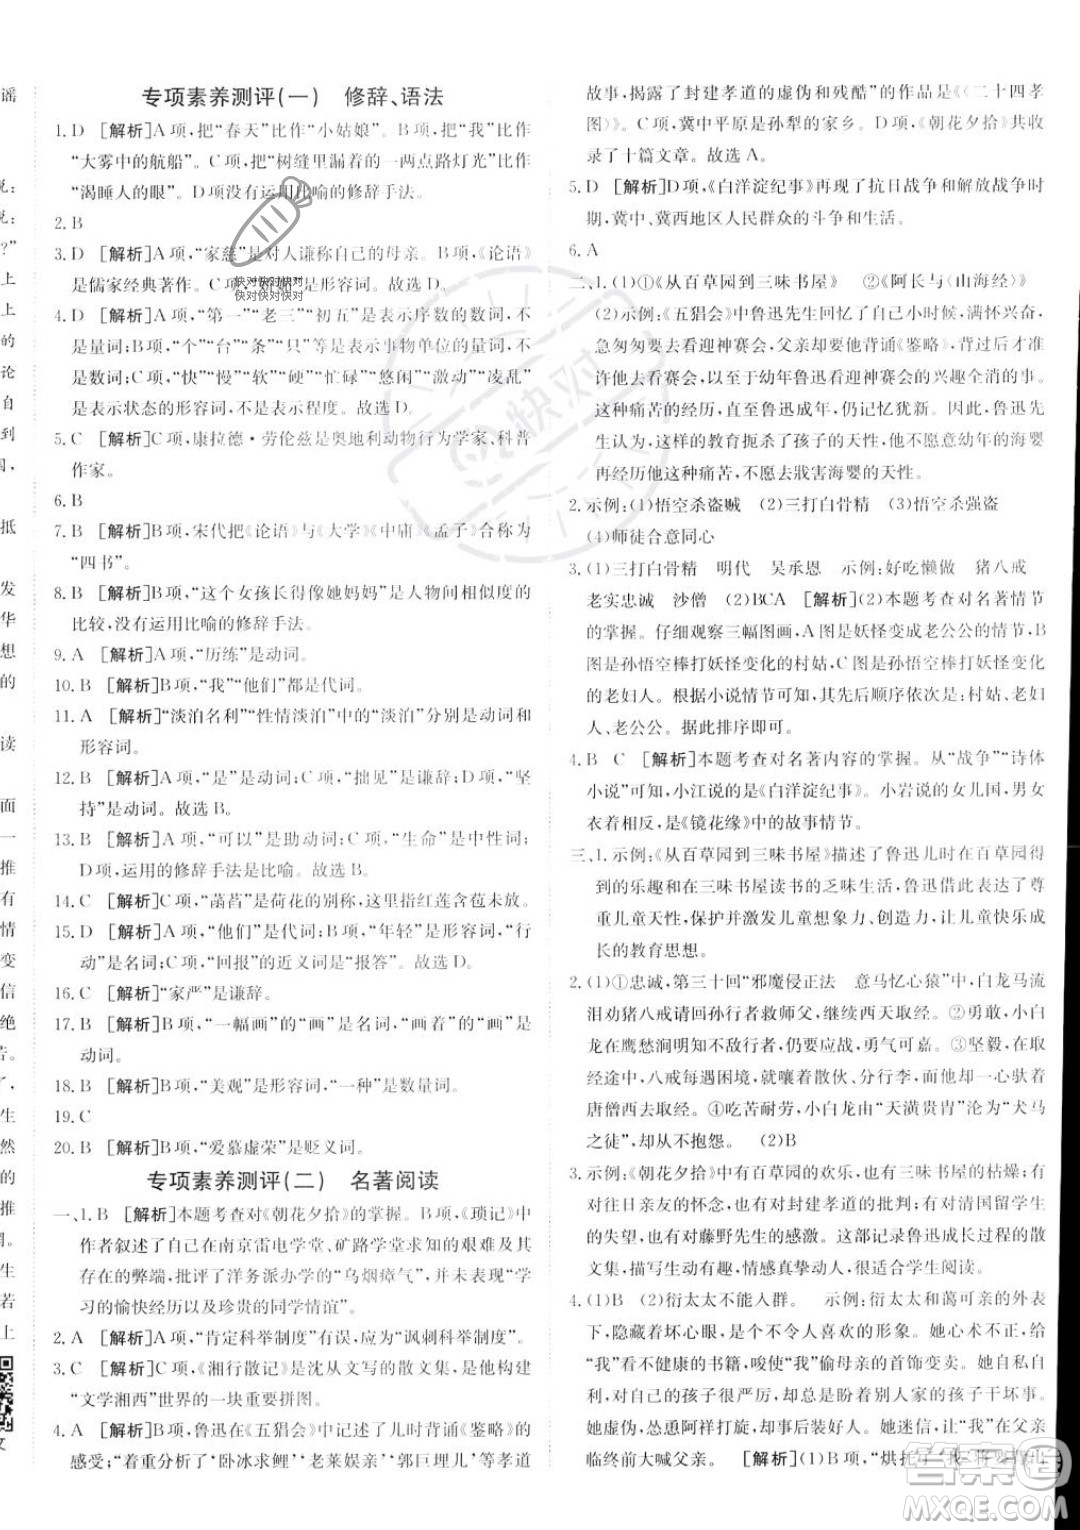 专项素养测评(一) 修辞、语法
1. D [解析]A项,把“春天”比作“小姑娘”。B项,把“我”比作
“大雾中的航船”。C项,把“树缝里漏着的一两点路灯光”比作
“渴睡人的眼”。D项没有运用比喻的修辞手法。
2. B
3. D [解析]A项,“家慈”是对人谦称自己的母亲。B项,《论语》
是儒家经典著作。C项,“故选D。
4. D [解析]A项,“第一”“老三”“初五”是表示序数的数词,不
是量词;B项,“个”“台”“条”“只”等是表示事物单位的量词,不
是数词;C项,“快”“慢”“软”“硬”“忙碌”“悠闲”“激动”“凌乱”
是表示状态的形容词,不是表示程度。故选D。
5. C [解析]C项,康拉德·劳伦兹是奥地利动物行为学家、科普
作家。
6. B
7. B [解析]B项,宋代把《论语》与《大学》《中庸》《孟子》合称为
“四书”。
8. B [解析]B项,“这个女孩长得像她妈妈”是人物间相同的
比较,没有运用比喻的修辞手法。
9. A [解析]A项,“历练”是动词。
10. B [解析]B项,“我”“他们”都是代词。
11. A [解析]“淡泊名利”“性情淡泊”中的“淡泊”分别是动词和
形容词。
12. B [解析]A项,“是”是动词;C项,“拙见”是谦辞;D项,“坚
持”是动词。故选B。
13. B [解析]A项,“可以”是助动词;C项,“生命”是中性词;
D项,运用的修辞手法是比喻。故选B。
14. C [解析]C项,“菡萏”是荷花的别称,这里指红莲含苞欲放。
15. D [解析]A项,“他们”是代词;B项,“年轻”是形容词,“行
动”是名词;C项,“回报”的近义词是“报答”。故选D。
16. C [解析]“家严”是谦辞。
17. B [解析]B项,“一幅画”的“画”是名词,“画着”的“画”是
动词。
18. B [解析]B项,“美观”是形容词,“一种”是数量词。
19. C
20. B [解析]B项,“爱慕虚荣”是贬义词。
专项素养测评(二) 名著阅读
一、1. B [解析]本题考查对《朝花夕拾》的掌握。B项,《琐记》中
作者叙述了自己在南京雷电学堂、矿路学堂求知的艰难及其中
存在的弊端,批评了洋务派办学的“乌烟瘴气”,并未表现“学
习的愉快经历以及珍贵的同学情谊”。
2. A [解析]A项,“肯定科举制度”有误,应为“讽刺科举制度”。
3. C [解析]C项,《湘行散记》是沈从文写的散文集,是他构建
“文学湘西”世界的一块重要拼图。
4. A [解析]A项,鲁迅在《五猖会》中记述了儿时背诵《鉴略》的
感受;“着重分析了‘卧冰求鲤’‘老莱娱亲’‘郭巨埋儿’等孝道
故事,揭露了封建孝道的虚伪和残酷”的作品是《〈二十四孝
图〉》。C项,冀中平原是孙犁的家乡。D项,《朝花夕拾》共收
录了十篇文章。故选A。
5. D [解析]D项,《白洋淀纪事》再现了抗日战争和解放战争时
期,冀中、冀西地区人民群众的斗争和生活。
6. A
二、1.(1)①《从百草园到三味书屋》 ②《阿长与〈山海经〉》
(2)示例:《五猖会》中鲁迅先生回忆了自己儿时,满怀兴奋,
急匆匆要去看迎神赛会,父亲却要他背诵《鉴略》,背完才让
他去看赛会,以至于幼年鲁迅看迎神赛会的兴趣全消的事。
这种痛苦的经历,直到鲁迅成年,仍记忆犹新。因此,鲁迅先
生以为,这样的教育扼杀了孩子的天性,他不愿意幼年的海婴
再经历他这种痛苦,不愿去戕害海婴的天性。
2. 示例:(1)悟空杀盗贼 (2)三打白骨精 (3)悟空杀强盗
(4)师徒合意同心
3. (1)三打白骨精 明代 吴承恩 示例:好吃懒做 猪八戒
老实忠诚 沙僧 (2)BCA [解析](2)本题考查对名著情节
的掌握。仔细观察三幅图画,A图是妖怪变成老公公的情节,B
图是孙悟空棒打妖怪变化的村姑,C图是孙悟空棒打妖怪变化
的老妇人。根据小说情节可知,其先后顺序依次是:村姑、老妇
人、老公公。据此排序即可。
4. B C [解析]本题考查对名著内容的掌握。从“战争”“诗体
小说”可知,小江说的是《白洋淀纪事》。小岩说的女儿国,男女
衣着相反,是《镜花缘》中的故事情节。
三、1. 示例:《从百草园到三味书屋》描述了鲁迅儿时在百草园得
到的乐趣和在三味书屋读书的乏味生活,鲁迅含蓄地呈现了尊
重儿童天性,保护并激发儿童想象力、创造力,让儿童快乐成
长的教育思想。
2. (1)①忠诚,第三十回“邪魔侵正法 意马忆心猿”中,白龙马流
泪劝猪八戒请回孙行者救师父,继续西天取经。②勇敢,小白
龙在鹰愁涧明知不敌行者,仍要应战,勇气可嘉。③坚毅,在取
经途中,八戒每遇困境,就嚷着散伙、分行李,而白龙马一心驮着
唐僧去取经。④吃苦耐劳,小白龙由“天潢贵胄”沦为“犬马
之徒”,却从不抱怨。 (2)B
3. 示例:《朝花夕拾》中有百草园的欢乐,也有三味书屋的枯燥;有
对往日亲友的怀念,也有对封建孝道的批判;有对清国留学生
的失望,也有对藤野先生的感激。这部记录鲁迅成长历程的散
文集,描写生动有趣,情感真挚动人,非常适合学生阅读。
4. (1)B (2)衍太太不能入群。 示例:衍太太和蔼可亲的外表
下隐藏着坏心眼,是个不令人喜欢的形象。她心术不正,给
“我”看不健康的书籍,唆使“我”偷母亲的首饰变卖。她自私自
利,对自己的孩子很严厉,却怂恿别人家的孩子干坏事。
她虚伪,怂恿阿祥打旋,事后却装好人。她迷信,在父亲
临终前大喊父亲。 [解析](1)B项,“烘托
快对快对快对
快对快对快对
快对
答案圈
MXQE.COM